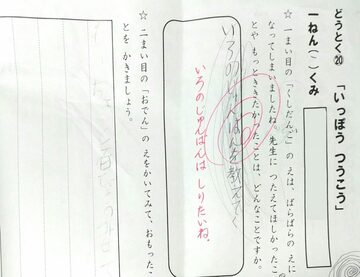 どうとく⑳ 「いっぽう つうこう」
一ねん( )くみ
☆ 一まい目の「くしだんご」の えは、ばらばらの えに
なってしまいましたね。先生に つたえてほしかったこ
とや もっとききたかったことは、どんなことですか。
いろのじゅんばんを教えて
いろのじゅんばんは しりたいね。
☆ 二まい目の「おでん」の えをかいてみて、おもったこ
とを かきましょう。